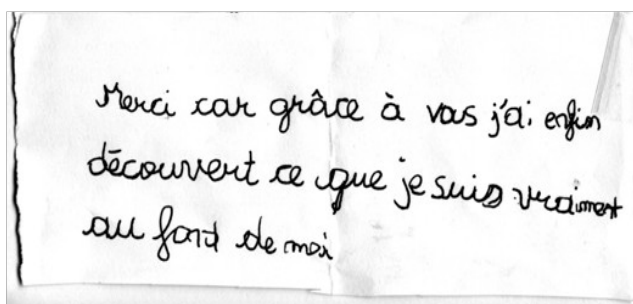 Merci car grâce à vous j'ai enfin
découvert ce que je suis vraiment
au fond de moi